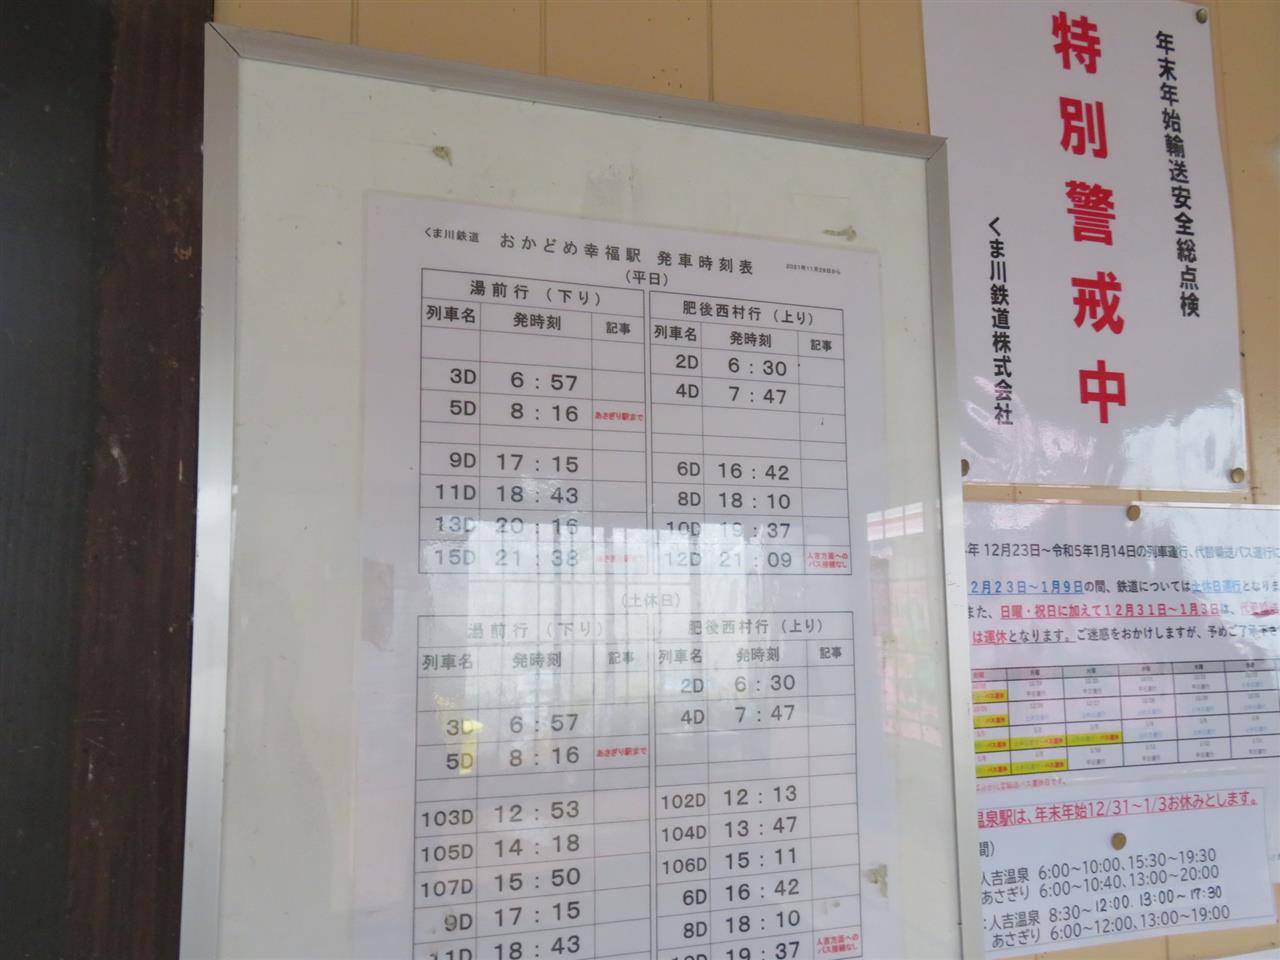 くま川鉄道 おかどめ幸福駅 発車時刻表 2021年11月28日から
(平日)
湯前行(下り)
列車名 発時刻 記事
3D 6:57
5D 8:16 あさぎり駅まで
9D 17:15
11D 18:43
13D 20:16
15D 21:38
肥後西村行(上り)
列車名 発時刻 記事
2D 6:30
4D 7:47
6D 16:42
8D 18:10
10D 19:37
12D 21:09 人吉方面への
バス接続なし
(土休日)
湯前行(下り)
列車名 発時刻 記事
3D 6:57
5D 8:16 あさぎり駅まで
103D 12:53
105D 14:18
107D 15:50
9D 17:15
11D 18:43
肥後西村行(上り)
列車名 発時刻 記事
2D 6:30
4D 7:47
102D 12:13
104D 13:47
106D 15:11
6D 16:42
8D 18:10
10D 19:37 人吉方面への
バス接続なし
年末年始輸送安全総点検
特別警戒中
くま川鉄道株式会社
年12月23日~令和5年1月14日の列車運行、代替輸送バス運行に
2月23日~1月9日の間、鉄道については土休日運行となりま
また、日曜・祝日に加えて12月31日~1月3日は、代替
は運休となります。ご迷惑をおかけしますが、予めご了承
温泉駅は、年末年始12/31~1/3お休みとします。
間)
人吉温泉 6:00~10:00、15:30~19:30
あさぎり 6:00~10:40、13:00~20:00
:人吉温泉 8:30~12:00、13:00~17:30
あさぎり 6:00~12:00、13:00~19:00